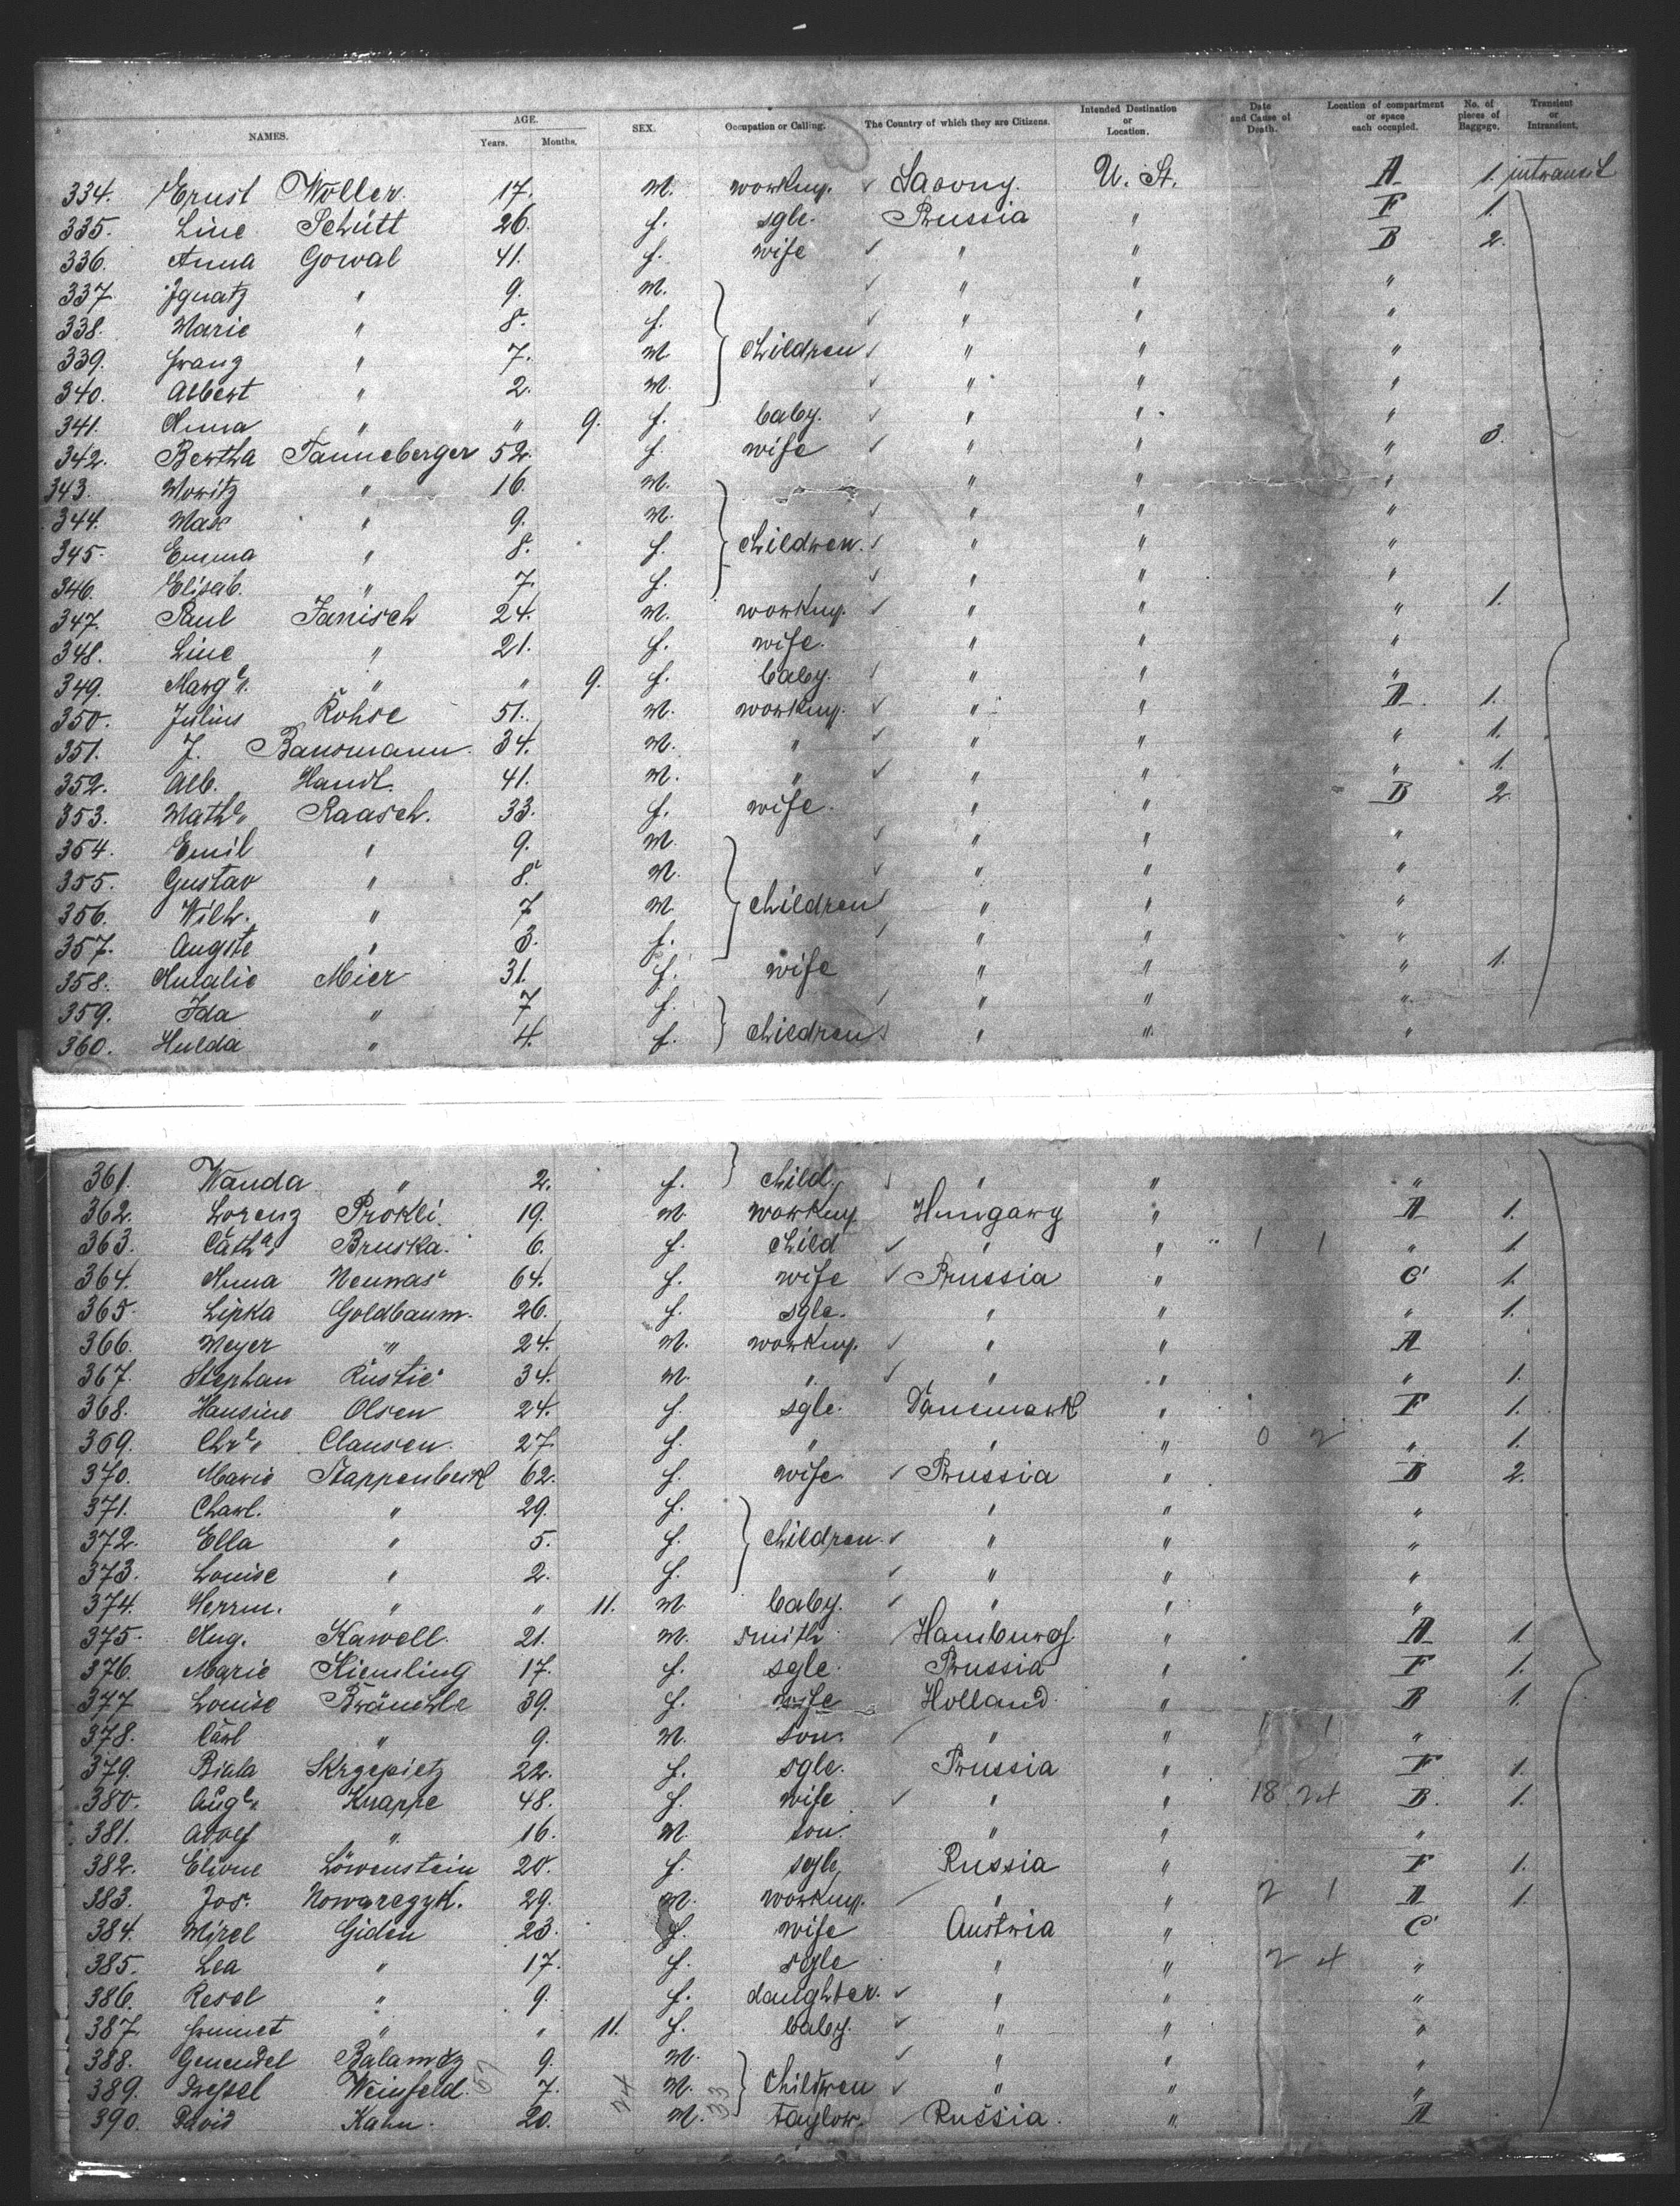 NAMES. AGE. Years. Months. SEX. Occupation or Calling. The Country of which they are Citizens. Intended Destination or Location. Date and Cause of Death. Location of compartment or space each occupied. No. of pieces of Baggage. Transient or Intransient.
334. Ernst Woller 17. m. workmg. Saxony. U. St. A 1. intransit
335. Line Schütt 26. f. sgle. Prussia " F 1.
336. Anna Gowal 41. f. wife " " B 2.
337. Ignatz " 9. m. " " "
338. Marie " 8. f. " " "
339. Franz " 7. m. children " " "
340. Albert " 2. m. " " "
341. Anna " " 9. f. baby. " " "
342. Bertha Tanneberger 52. f. wife " " " 3.
343. Moritz " 16. m. " " "
344. Max " 9. m. " " "
345. Emma " 8. f. children. " " "
346. Elisab. " 7. f. " " "
347. Paul Janisch 24. m. workmg. " " " 1.
348. Line " 21. f. wife. " " "
349. Marg e. " " 9. f. baby. " " "
350. Julius Rohse 51. m. workmg. " " A 1.
351. J. Bansmann 34. m. " " " " 1.
352. Alb. Handt. 41. m. " " " " 1.
353. Math e. Raasch. 33. f. wife. " " B 2
354. Emil " 9. m. " " "
355. Gustav " 8. m. " " "
356. Wilh. " 7 m. children " " "
357. Augste " 3. f. " " "
358. Amalie Mier 31. f. wife " " " 1.
359. Ida " 7 f. " " "
360. Hulda " 4. f. children " " "
361. Wanda " 2. f. child. " " "
362. Lorenz Prokli. 19. m. workmg. Hungary " A 1.
363. Cath a. Bruska. 6. f. child " " 1 1 " 1.
364. Anna 64. f. wife Prussia " C 1.
365. Lipka Goldbaum. 26. f. sgle. " " " 1.
366. Meyer " 24. m. workmg. " " A
367. Stephan Rustic 34. m. " " " " 1.
368. Hansine Olsen 24. f. sgle. Dänemark " F 1.
369. Chr e. Clausen. 27. f. " " " 0 2 " 1.
370. Marie Stappenbeck 62. f. wife Prussia " B 2.
371. Charl. " 29. f. " " "
372. Ella " 5. f. children. " " "
373. Louise " 2. f. " " "
374. Herrm. " " 11. m. baby. " " "
375. Aug. Kawell. 21. m. smith Hamburg. " A 1.
376. Marie Kiemling 17. f. sgle. Prussia " F 1.
377 Louise Bränchle 39. f. wife Holland " B 1.
378. Carl " 9. m. son. " " 1 1 "
379. Biala Skrzepietz 22. f. sgle. Prussia " F 1.
380. Aug e. Knappe 48. f. wife " " 18 24 B. 1.
381. Adolf " 16. m. son. " " "
382. Löwenstein 20. f. sgle, Russia " F 1.
383. Jos. 29. m. workmg. " " 2 1 A 1.
384. Mirel Giden 23. f. wife Austria " C
385. Lea " 17. f. sgle " " 2 4 "
386. Resel " 9. f. daughter. " " "
387. " " 11. f. baby. " " "
388. Genendel 9. m. " " "
389. Weinfeld. 7. m. children " " "
390. David Kahn. 20. m. taylor. Russia. " A